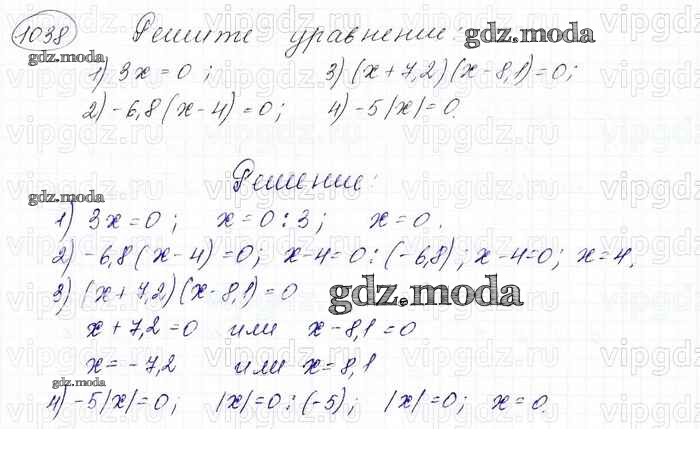 1038 Решите уравнение: gdz.moda
gdz.moda
1) 3x = 0; 3) (x + 7,2)(x - 8,1) = 0;
2) -6,8(x - 4) = 0; 4) -5|x| = 0.
Решение:
gdz.moda
1) 3x = 0; x = 0 : 3; x = 0.
2) -6,8(x - 4) = 0; x - 4 = 0 : (-6,8); x - 4 = 0; x = 4.
3) (x + 7,2)(x - 8,1) = 0
gdz.moda
x + 7,2 = 0 или x - 8,1 = 0
x = -7,2 или x = 8,1
gdz.moda
4) -5|x| = 0; |x| = 0 : (-5); |x| = 0; x = 0.
gdz.moda